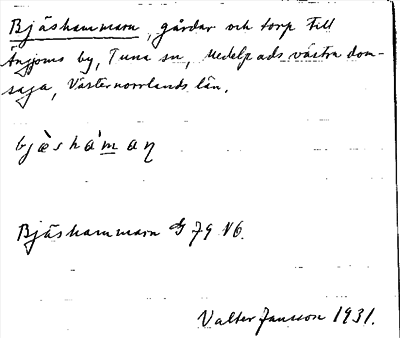 Bjäshammarn, gårdar och torp till
Ängjoms by, Tuna sn, Medelpads västra dom-
saga, Västernorrlands län.
bjæ̀shàman
Bjäshammarn G 79 V6.
Valter Jansson 1931.